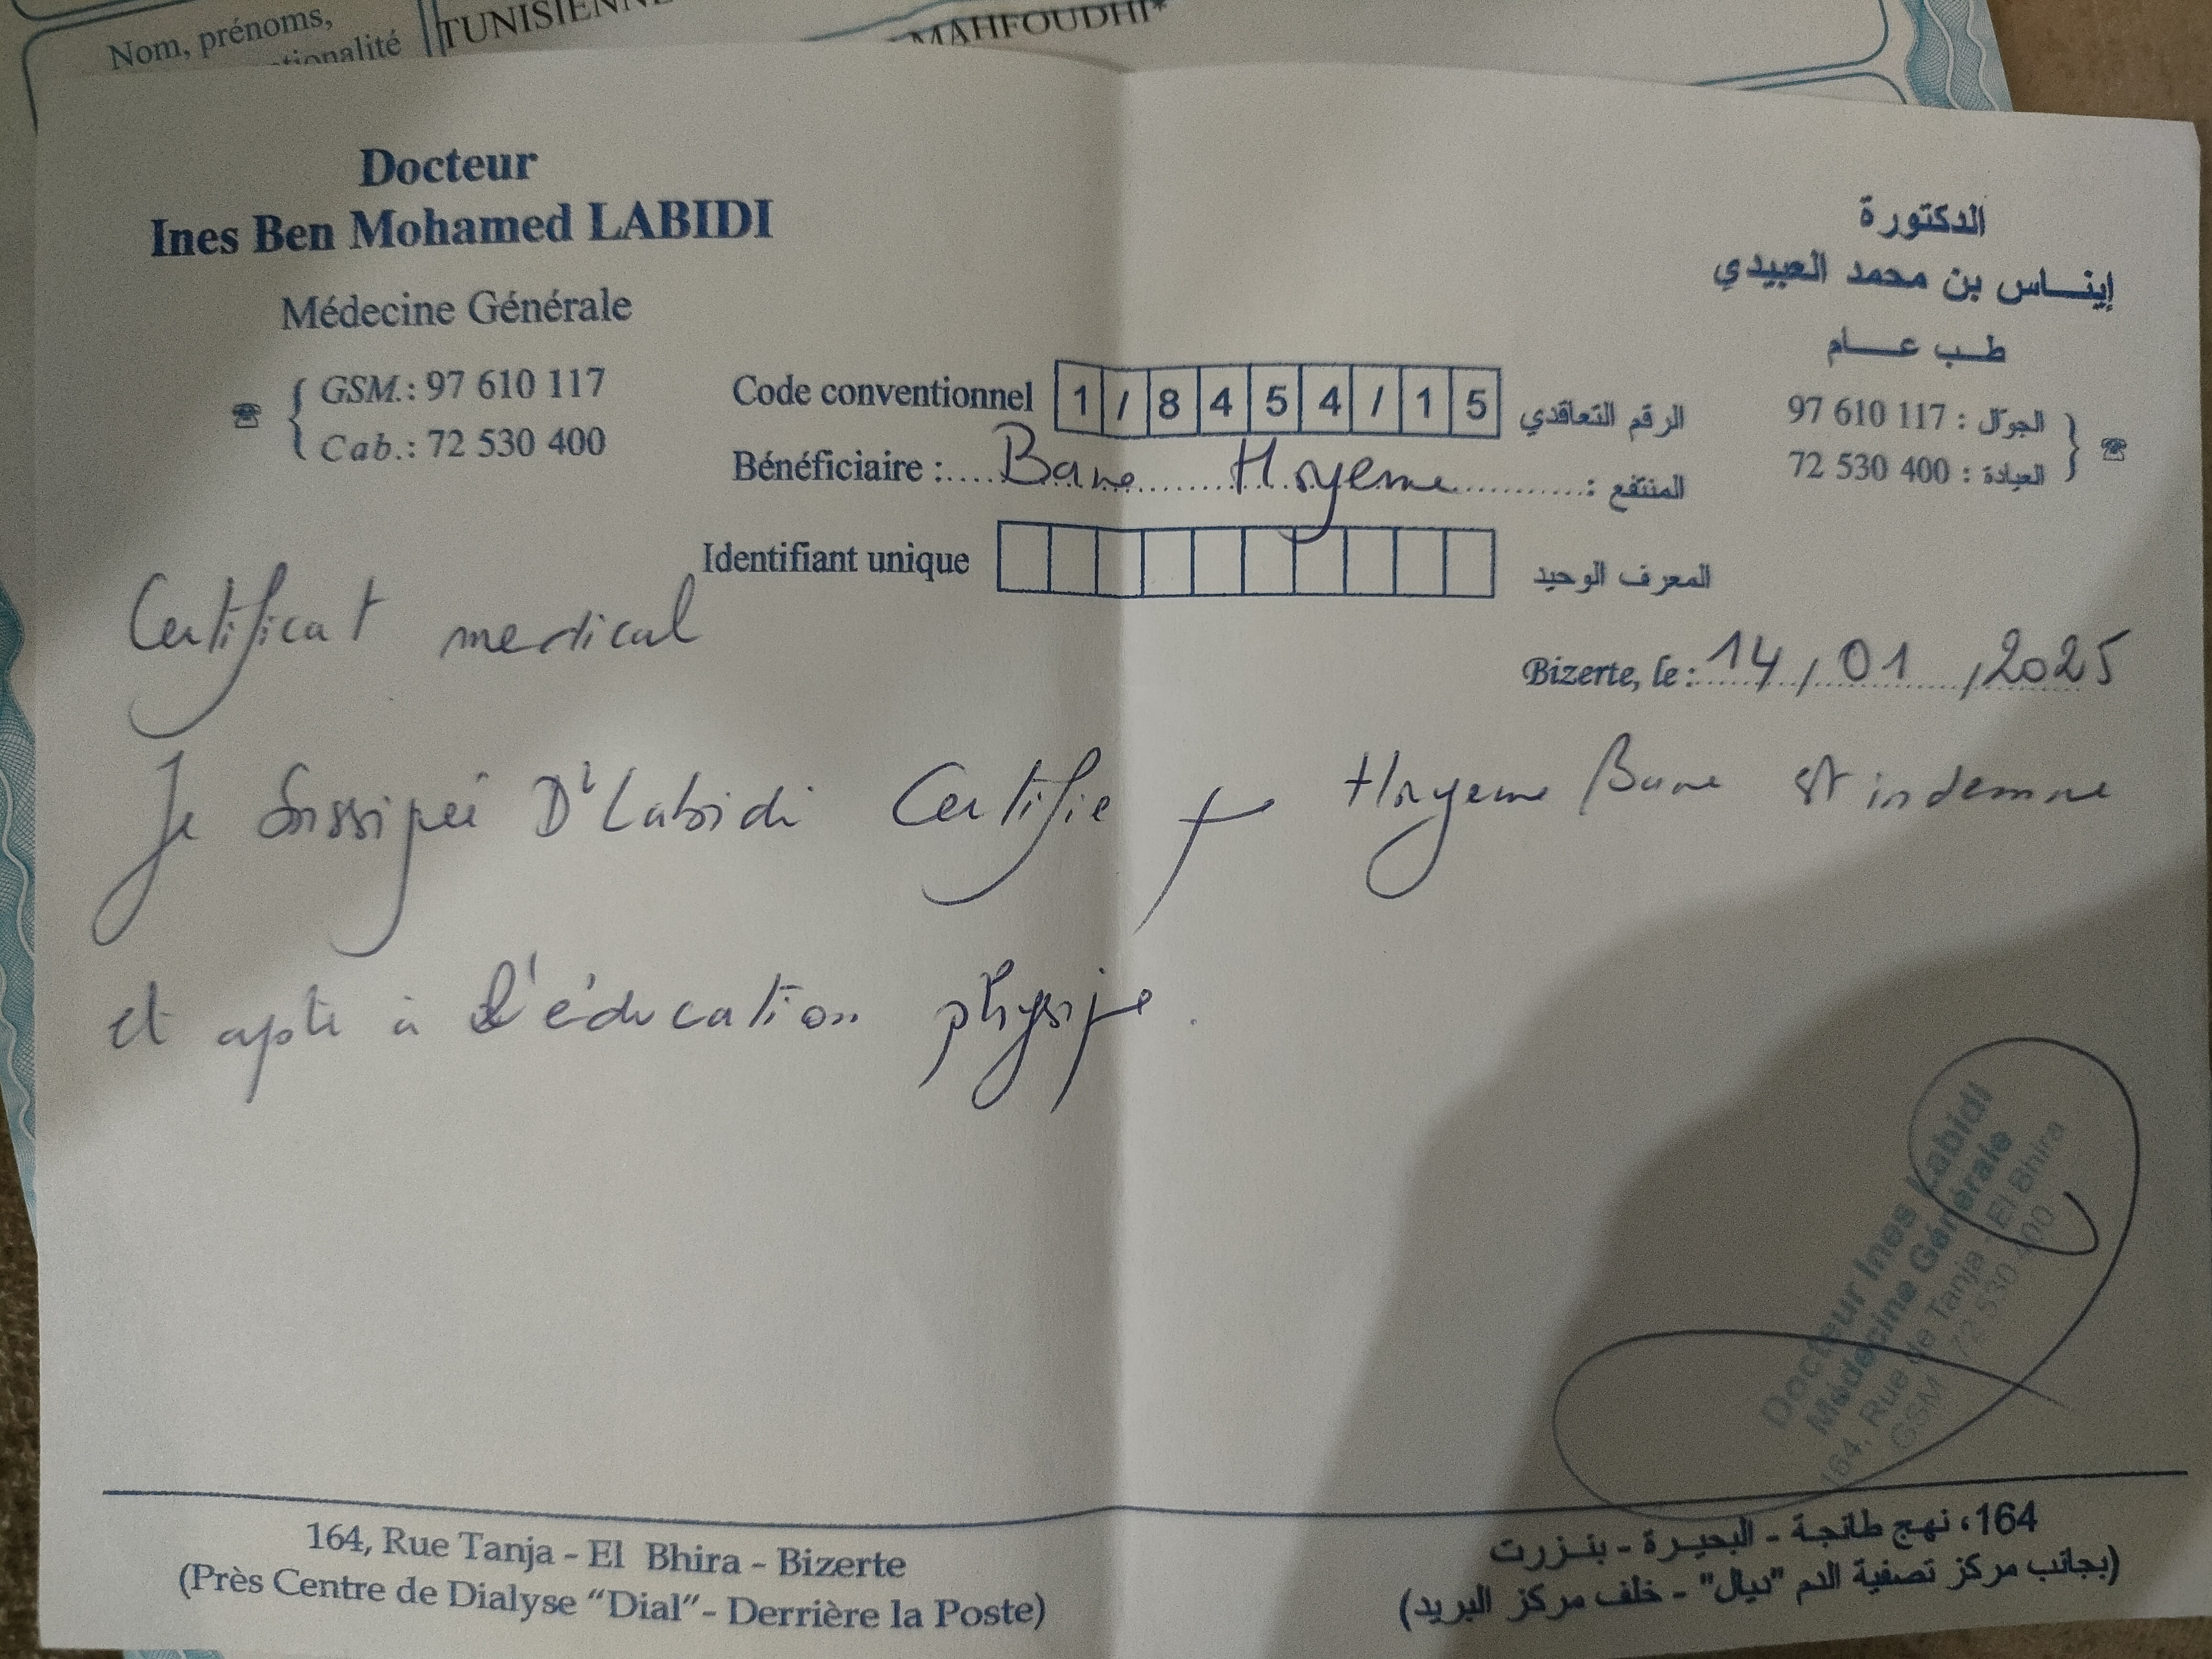 Nom, prénoms,
TUNISIENNE
MAHFOUDHI*
Docteur
Ines Ben Mohamed LABIDI
Médecine Générale
GSM.: 97 610 117
Cab.: 72 530 400
الدكتورة
إيناس بن محمد العبيدي
طب عام
الجوّال : 97 610 117
العيادة : 72 530 400
Code conventionnel 1/8454/15 الرقم التعاقدي
Bénéficiaire : Bane Hoyeme المنتفع :
Identifiant unique المعرف الوحيد
Certificat medical
Bizerte, le : 14/01/2025
Je Dr Labidi Certifie Hoyeme Bane est indemne
et apte à l'éducation physique.
Docteur Ines Labidi
Médecine Générale
164, Rue de Tanja - El Bhira
GSM 72 530 400
164, Rue Tanja - El Bhira - Bizerte
(Près Centre de Dialyse "Dial" - Derrière la Poste)
164، نهج طانجة - البحيرة - بنزرت
(بجانب مركز تصفية الدم "ديال" - خلف مركز البريد)